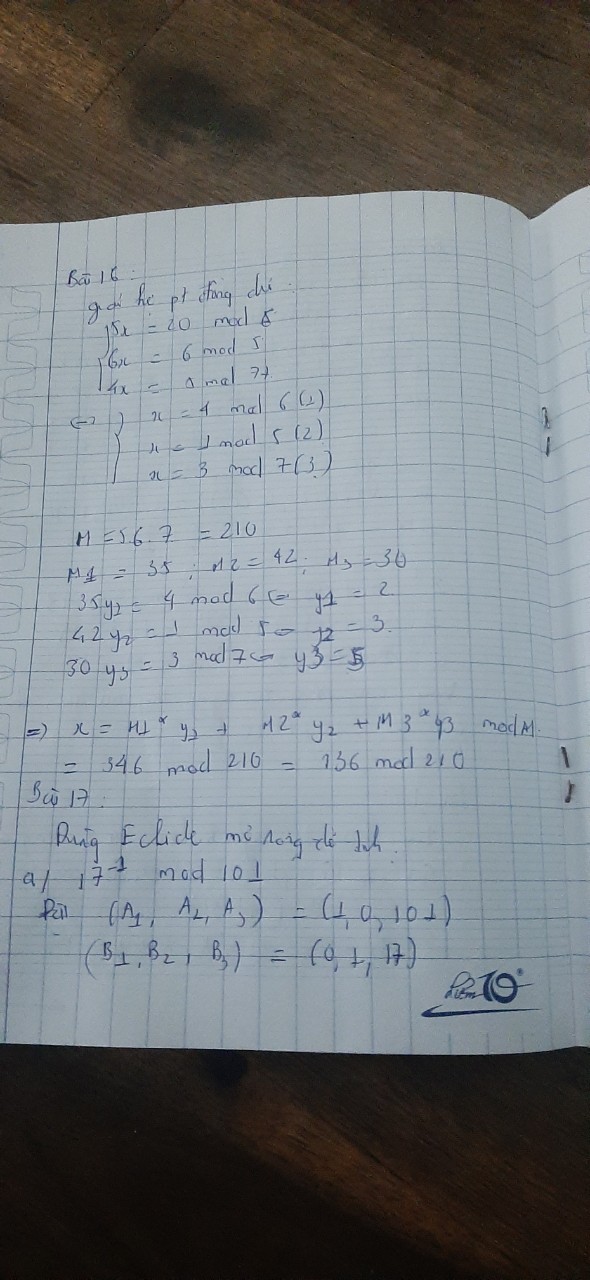 Bài 16:
giải hệ pt đồng dư:
5x = 20 mod 6
6x = 6 mod 5
4x = mod 77
<=> x = 4 mod 6 (1)
x = 1 mod 5 (2)
x = 3 mod 7 (3)
M = 56.7 = 210
M1 = 35; M2 = 42; M3 = 30
35y1 = 4 mod 6 <=> y1 = 2
42y2 = 1 mod 5 <=> y2 = 3
30 y3 = 3 mod 7 <=> y3 = 5
=> x = M1* y1 + M2* y2 + M3* y3 mod M
= 346 mod 210 = 136 mod 210
Bài 17:
Dùng Eclide mở rộng để tính.
a/ 17⁻¹ mod 101
(A1, A2, A3) = (1, 0, 101)
(B1, B2, B3) = (0, 1, 17)
Điểm 10